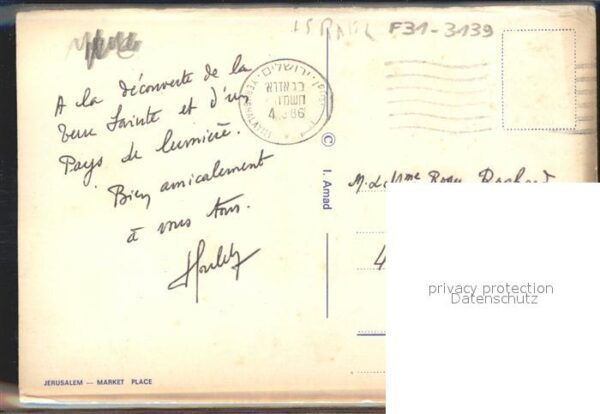 ISRAEL F31-3139
A la découverte de la
Terre Sainte et d'un
Pays de lumière.
Bien amicalement
à vous tous.
ירושלים
© I. Amad
M. et Mme
4
privacy protection
Datenschutz
JERUSALEM — MARKET PLACE